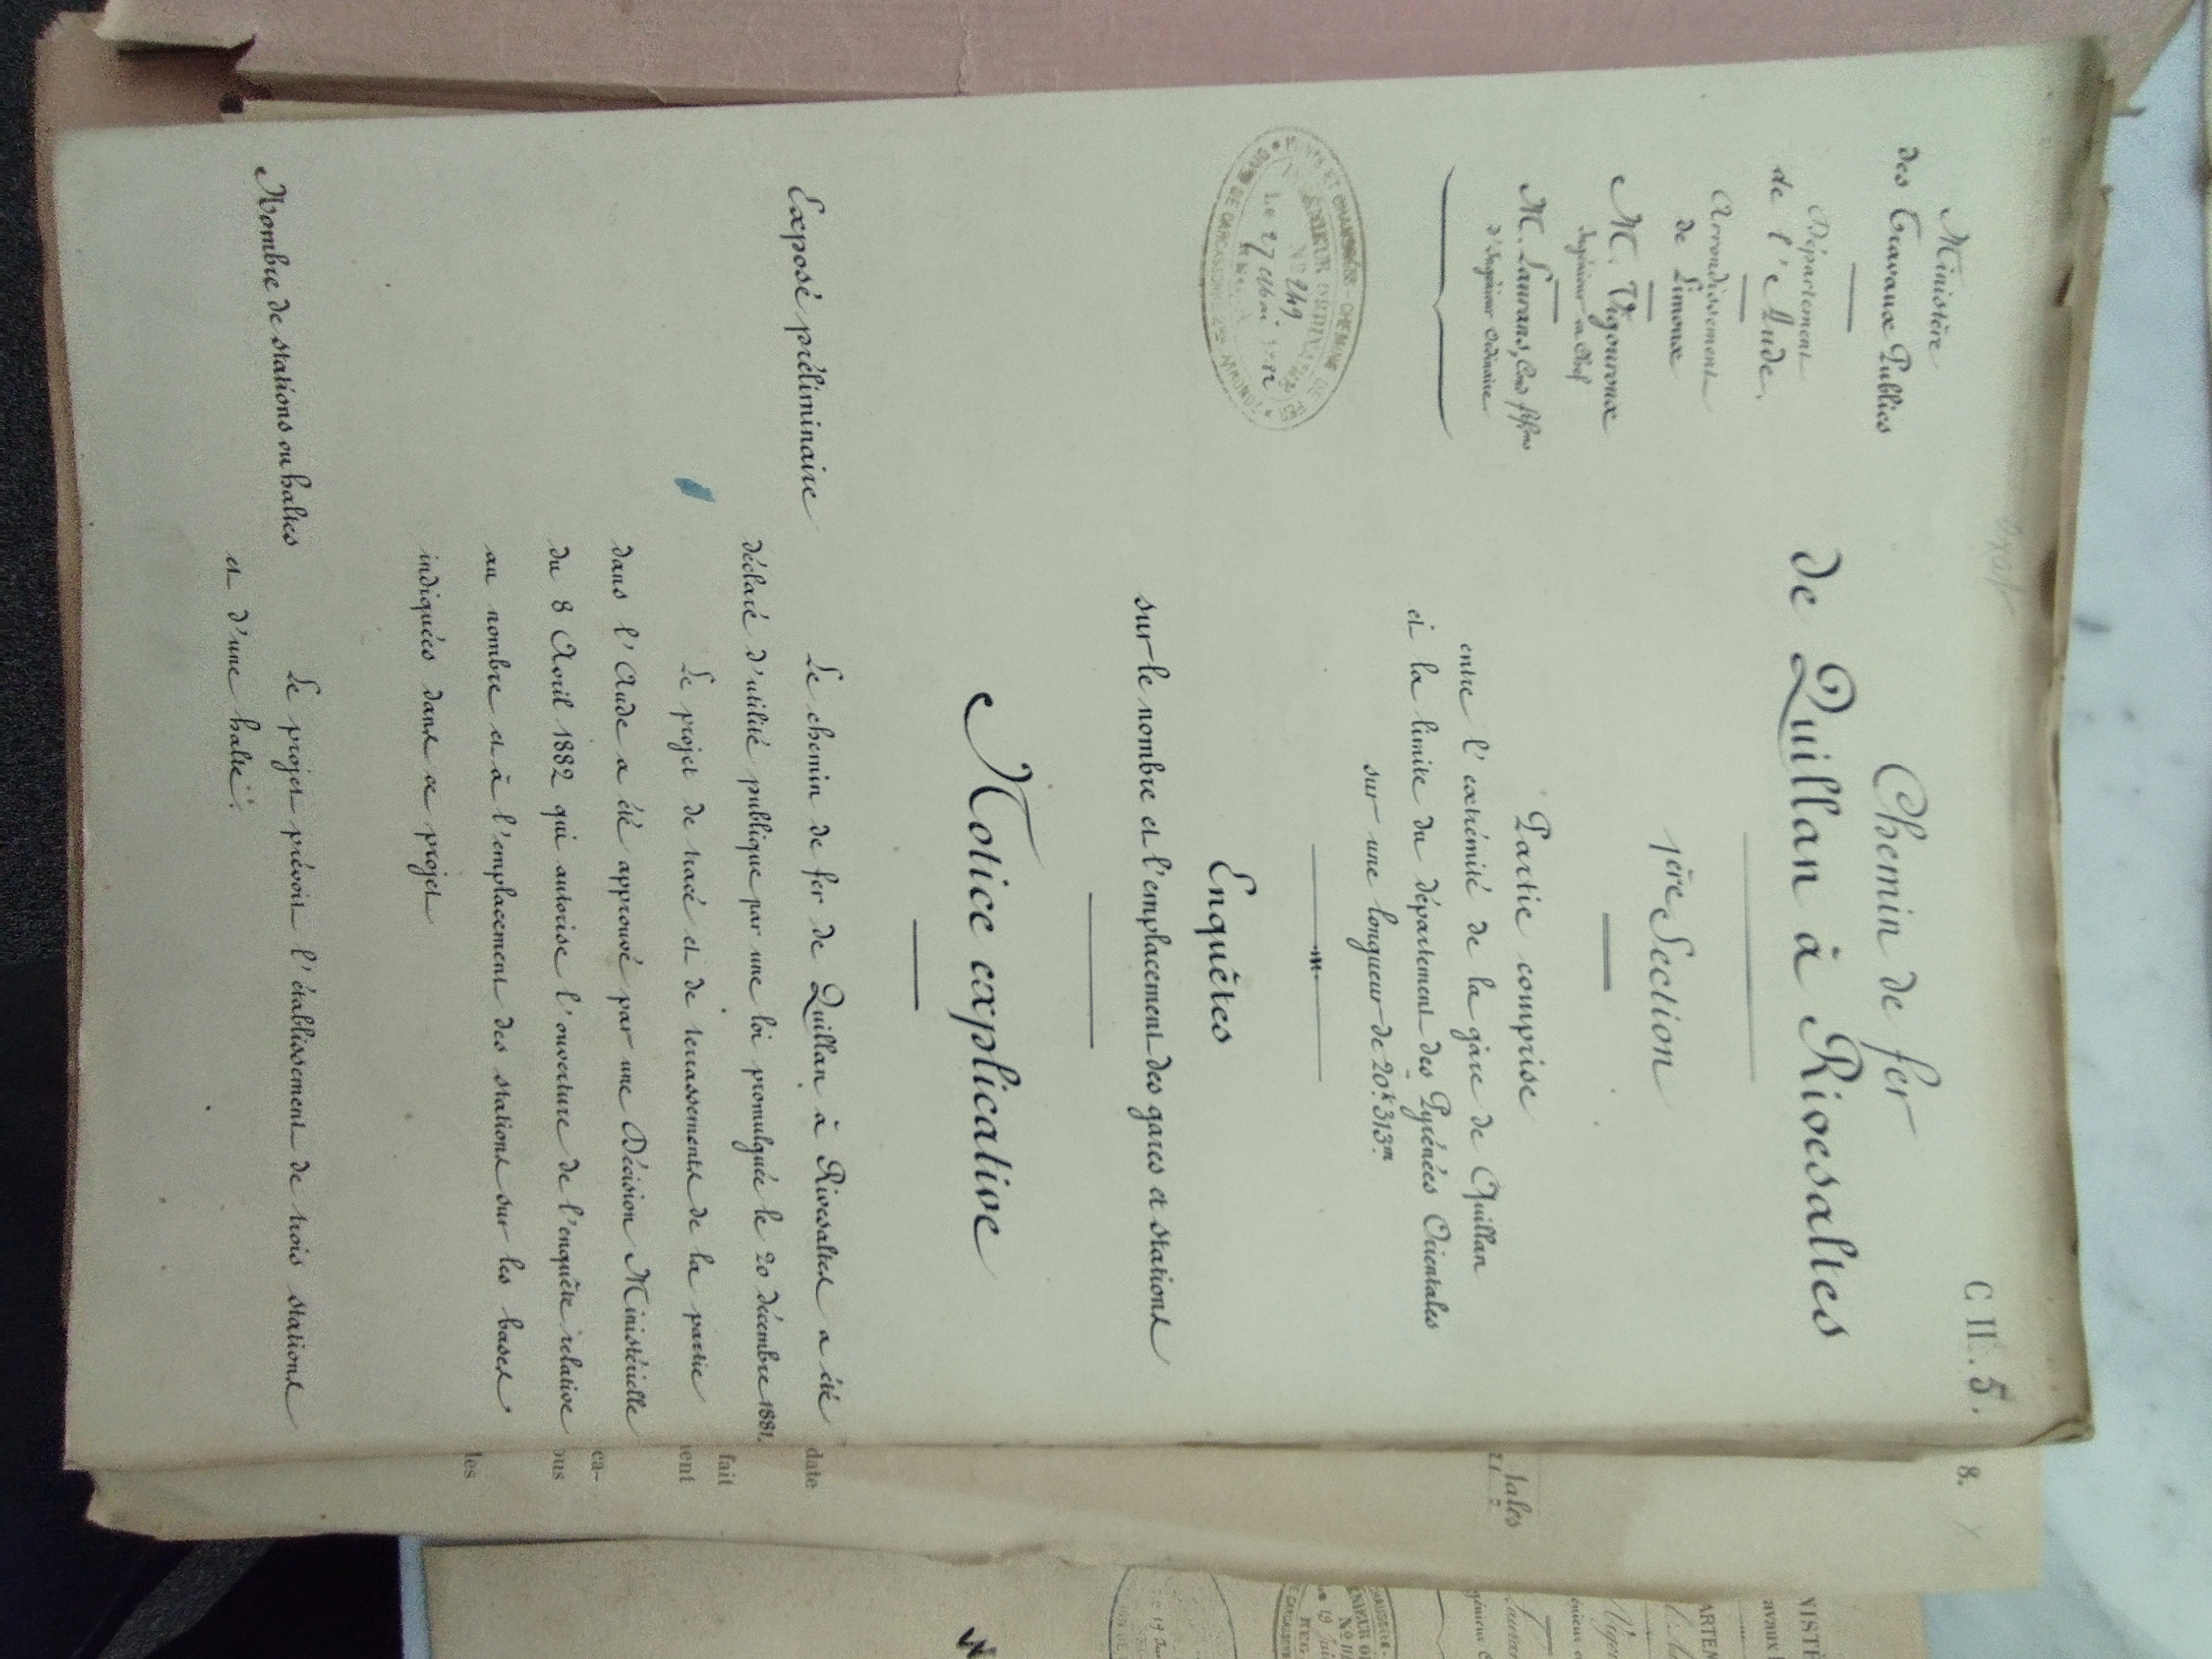 C II. 5.
8.
Ministère
des Travaux Publics
Département
de l'Aude.
Arrondissement
de Limoux
M. Vigouroux
Ingénieur en Chef
M. Laurans, Cond
d'Ingénieur Ordinaire
PONTS ET CHAUSSÉES - CHEMINS DE FER
INGÉNIEUR ORDINAIRE
N° 249
Le 27 Mai 1882
DE CARCASSONNE
Chemin de fer
de Quillan à Rivesaltes
1ère Section
Partie comprise
entre l'extrémité de la gare de Quillan
et la limite du département des Pyrénées Orientales
sur une longueur de 20k 313m
Enquêtes
sur le nombre et l'emplacement des gares et stations
Notice explicative
Exposé préliminaire
Le chemin de fer de Quillan à Rivesaltes a été
déclaré d'utilité publique par une loi promulguée le 20 décembre 1881.
Le projet de tracé et de terrassements de la partie
dans l'Aude a été approuvé par une Décision Ministérielle
du 8 Avril 1882 qui autorise l'ouverture de l'enquête relative
au nombre et à l'emplacement des stations sur les bases
indiquées dans ce projet
Nombre de stations ou haltes
Le projet prévoit l'établissement de trois stations
et d'une halte.
tales
date
fait
ent
ca-
ous
les